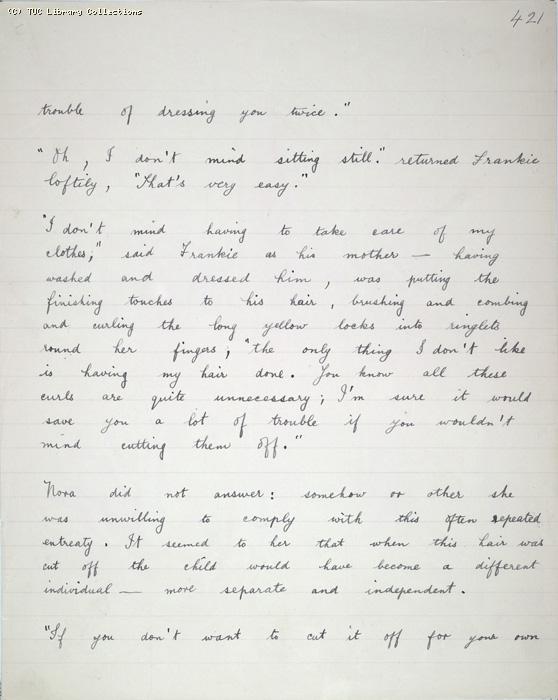 (C) TUC Library Collections
421
trouble of dressing you twice."
"Oh, I don't mind sitting still." returned Frankie
loftily, "That's very easy."
"I don't mind having to take care of my
clothes;" said Frankie as his mother — having
washed and dressed him, was putting the
finishing touches to his hair, brushing and combing
and curling the long yellow locks into ringlets
round her fingers, "the only thing I don't like
is having my hair done. You know all these
curls are quite unnecessary; I'm sure it would
save you a lot of trouble if you wouldn't
mind cutting them off."
Nora did not answer: somehow or other she
was unwilling to comply with this often repeated
entreaty. It seemed to her that when this hair was
cut off the child would have become a different
individual — more separate and independent.
"If you don't want to cut it off for your own